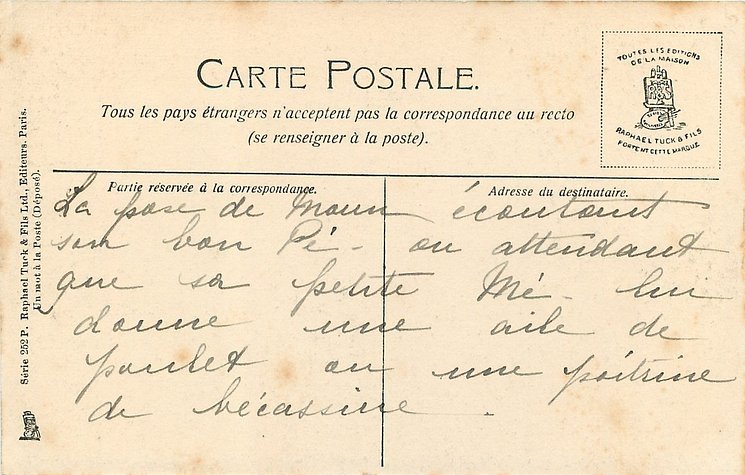 CARTE POSTALE.
Tous les pays étrangers n'acceptent pas la correspondance au recto
(se renseigner à la poste).
TOUTES LES EDITIONS
DE LA MAISON
RAPHAEL TUCK & FILS
PORTENT CETTE MARQUE
Partie réservée à la correspondance.
Adresse du destinataire.
La pose de Moun écoutant
son bon Pé - ou attendant
que sa petite Mé - lui
donne une aile de
poulet ou une poitrine
de bécassine.
Série 252 P. Raphael Tuck & Fils Ltd., Editeurs. Paris.
Un mot à la Poste (Déposé).